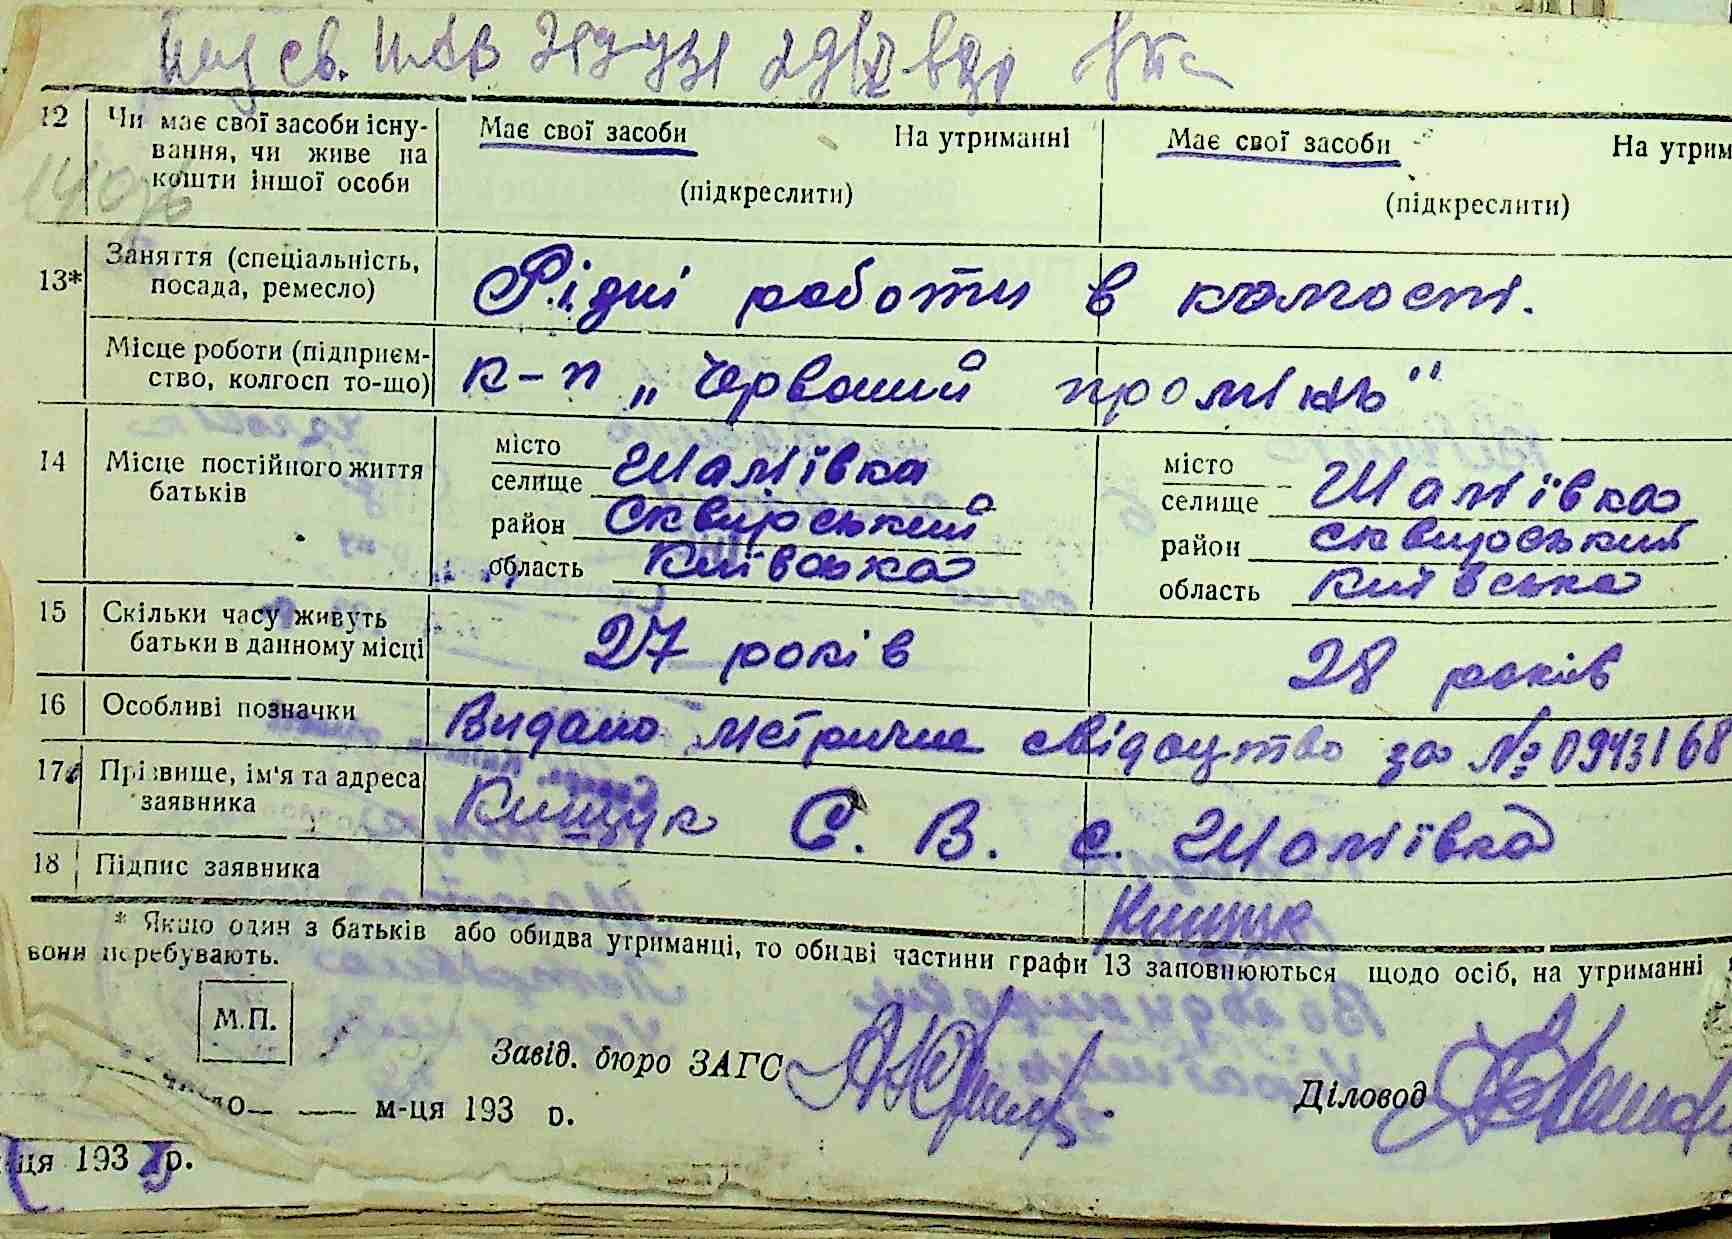 12 Чи має свої засоби існу- Має свої засоби На утриманні Має свої засоби На утрим
вання, чи живе на
кошти іншої особи (підкреслити) (підкреслити)
13* Заняття (спеціальність,
посада, ремесло) Рідні роботи в колгоспі.
Місце роботи (підприєм-
ство, колгосп то-що) к-п „Червоний промінь"
14 Місце постійного життя
батьків
місто
селище Шаліївка
район Сквирський
область Київська
місто
селище Шаліївка
район Сквирський
область Київська
15 Скільки часу живуть
батьки в данному місці 27 років 28 років
16 Особливі позначки Видано метричне свідоцтво за № 0943168
17 Прізвище, ім'я та адреса
заявника Кищук Є. В. с. Шаліївка
18 Підпис заявника Кищук
* Якшо один з батьків або обидва утриманці, то обидві частини графи 13 заповнюються щодо осіб, на утриманні
вони перебувають.
М.П.
Завід. бюро ЗАГС Діловод
м-ця 193 р.
ця 193 р.